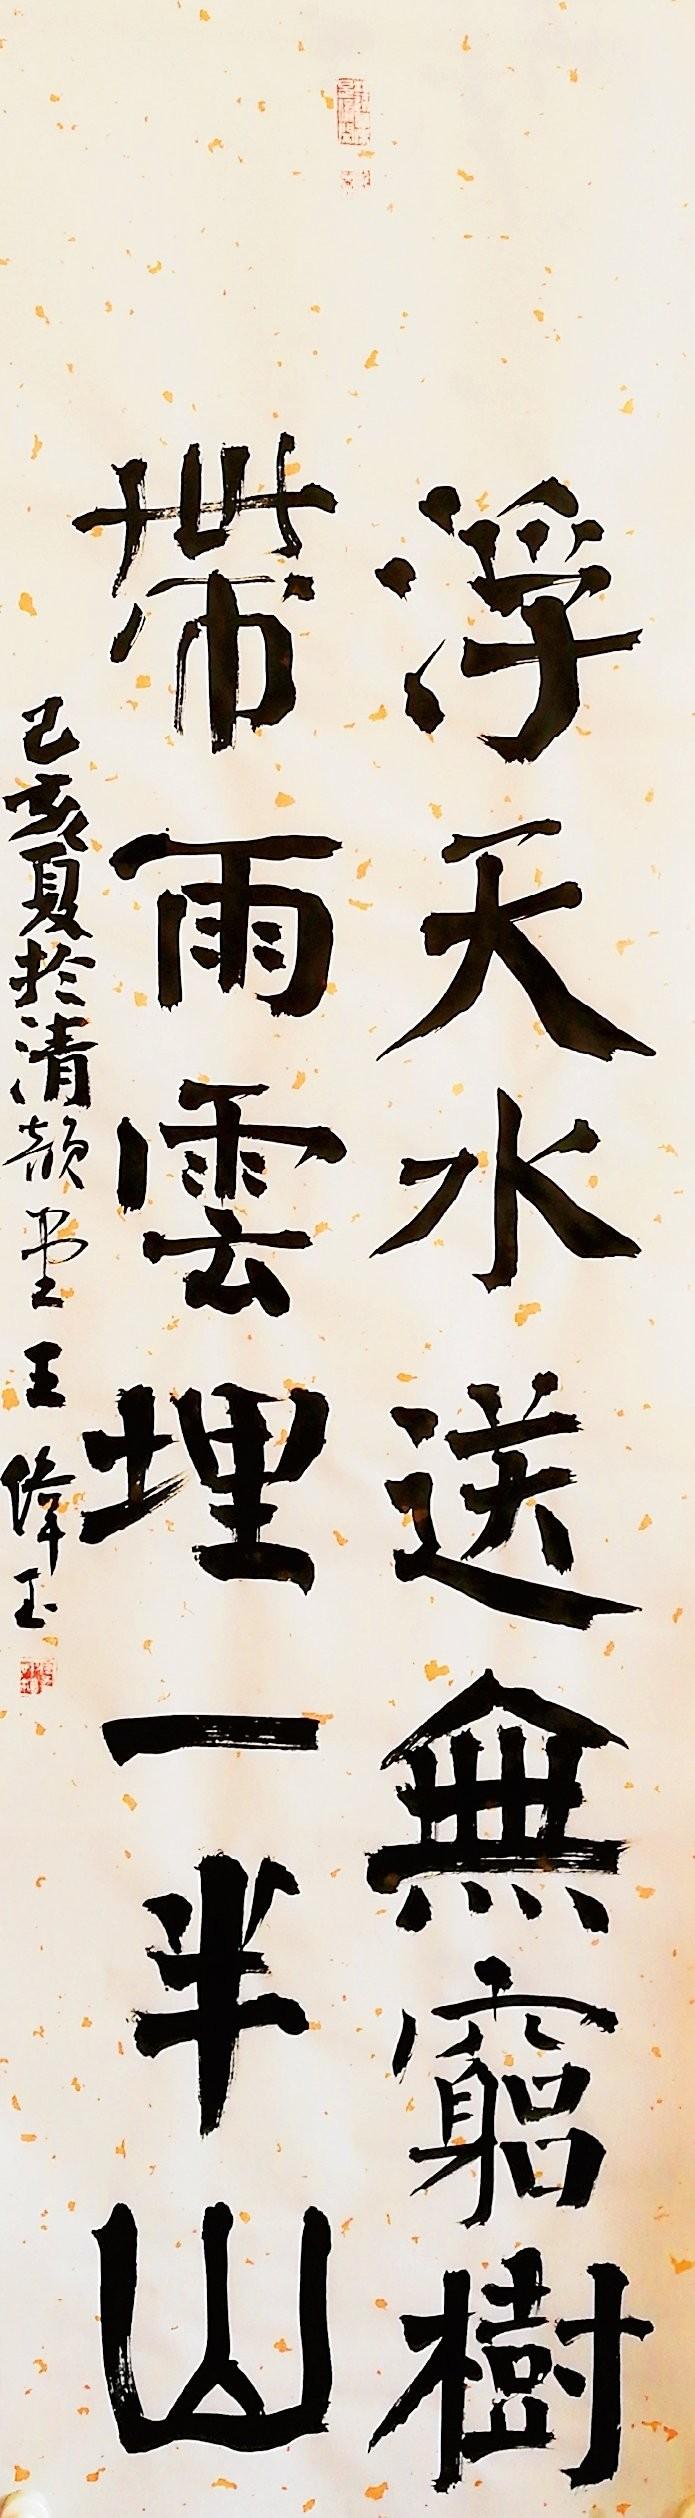 浮天水送無窮樹
帶雨雲埋一半山
己亥夏於清頡堂王偉玉